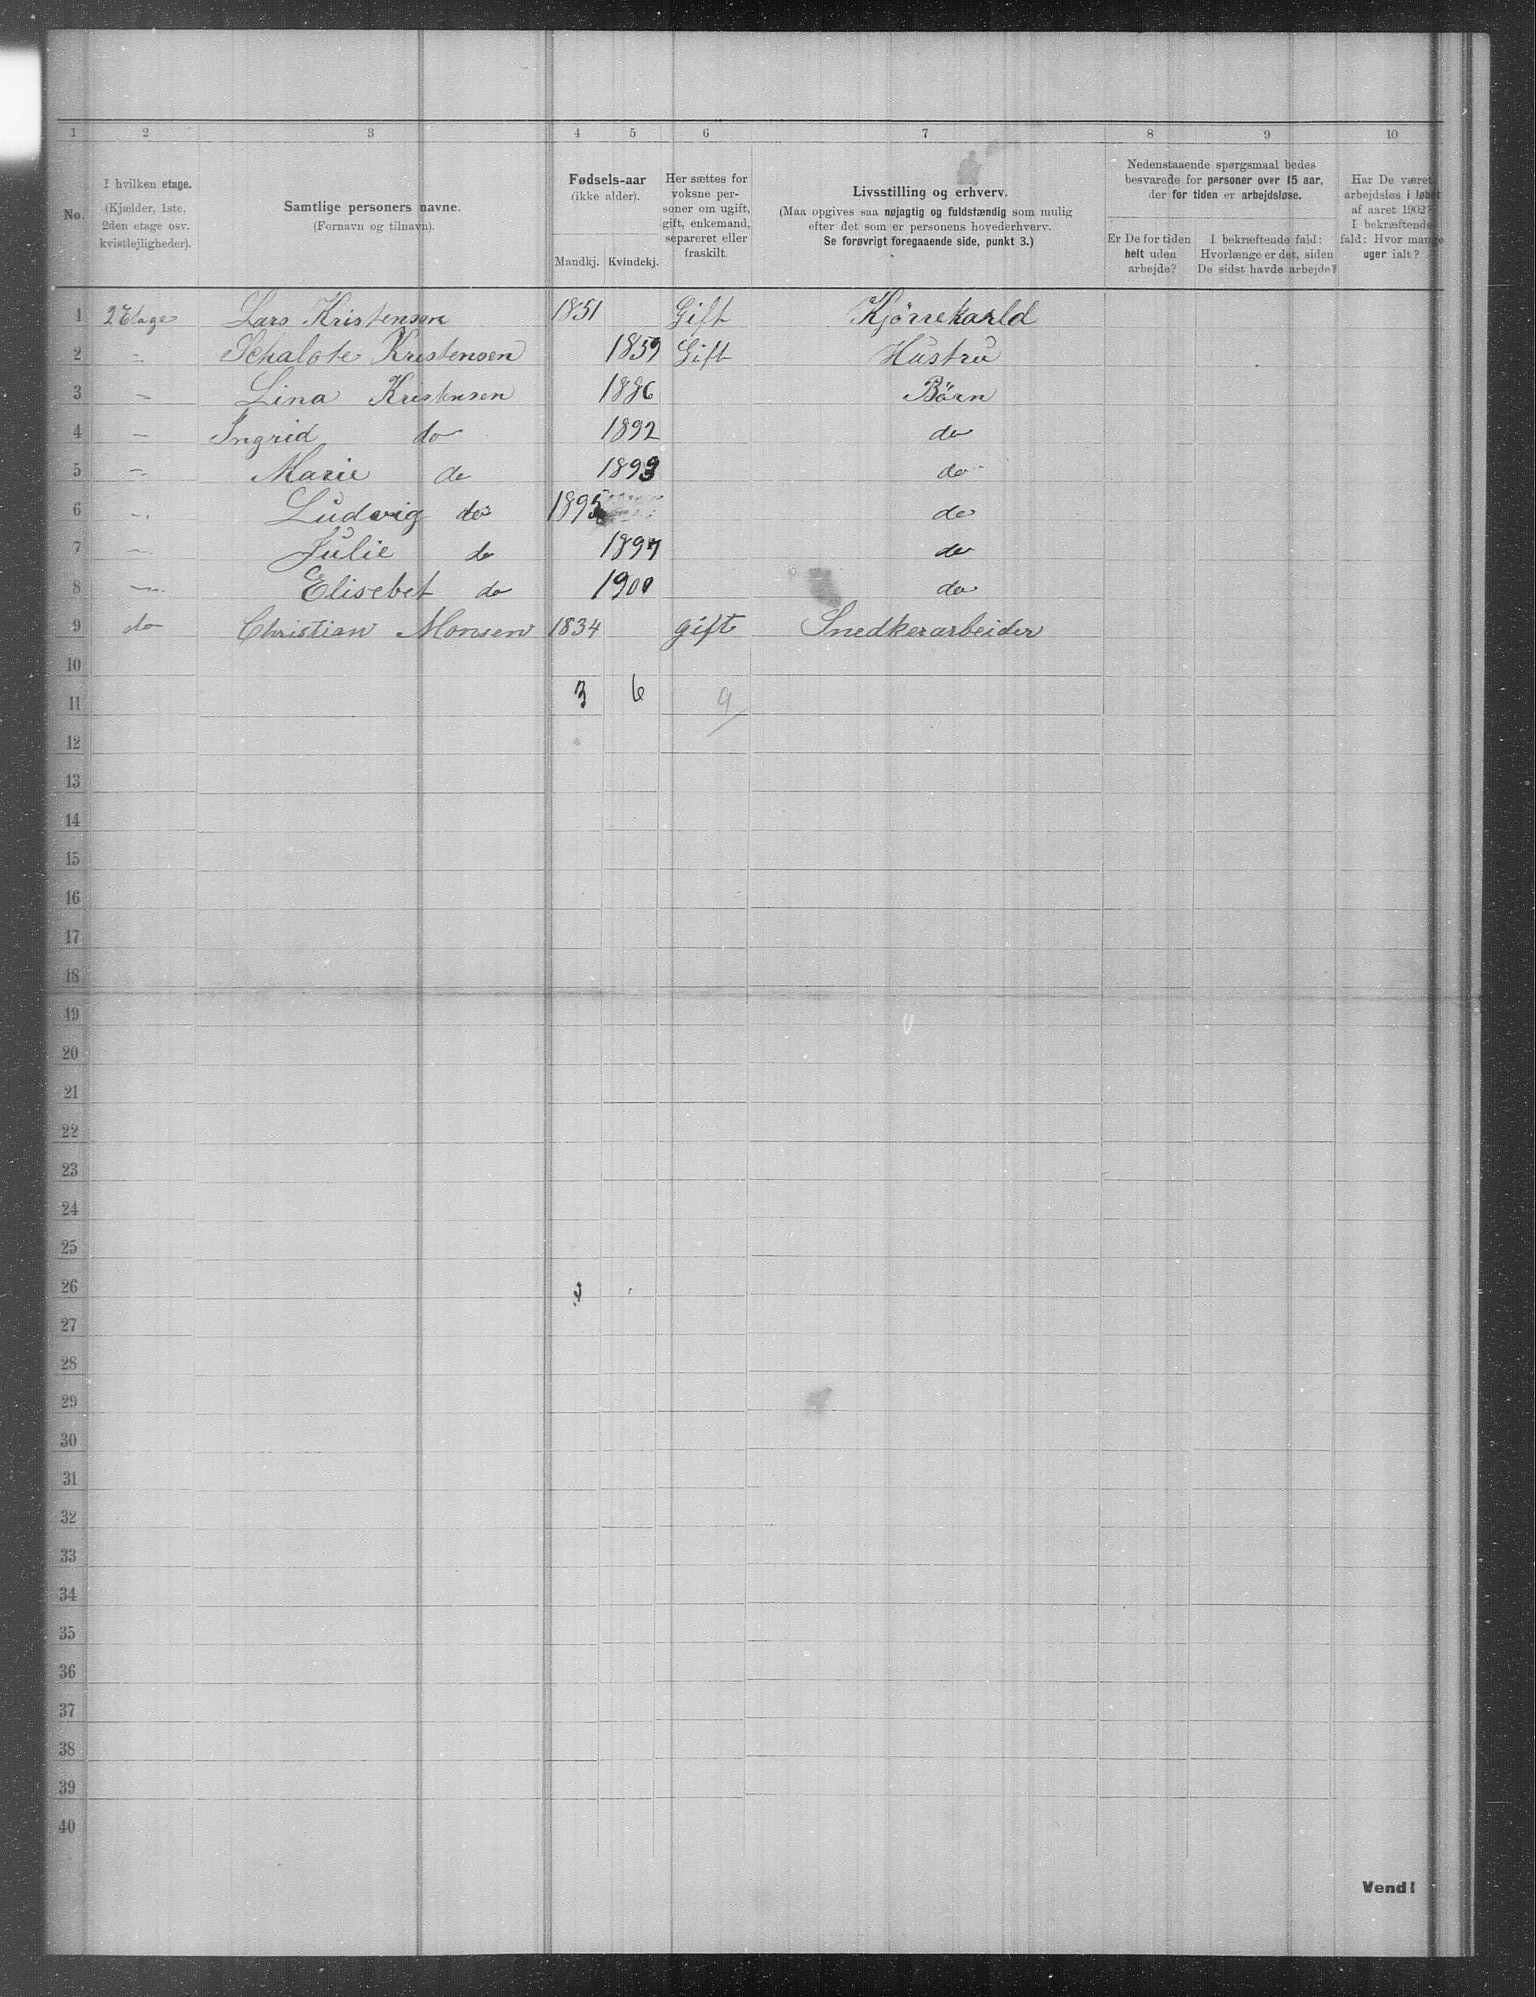 1 2 3 4 5 6 7 8 9 10
No.
I hvilken etage.
(Kjælder, 1ste,
2den etage osv.
kvistlejligheder).
Samtlige personers navne.
(Fornavn og tilnavn).
Fødsels-aar
(ikke alder).
Mandkj. Kvindekj.
Her sættes for
voksne per-
soner om ugift,
gift, enkemand,
separeret eller
fraskilt.
Livsstilling og erhverv.
(Maa opgives saa nøjagtig og fuldstændig som mulig
efter det som er personens hovederhverv.
Se forøvrigt foregaaende side, punkt 3.)
Nedenstaaende spørgsmaal bedes
besvarede for personer over 15 aar,
der for tiden er arbejdsløse.
Er De for tiden
helt uden
arbejde?
I bekræftende fald:
Hvorlænge er det, siden
De sidst havde arbejde?
Har De været
arbejdsløs i løbet
af aaret 1902?
I bekræftende
fald: Hvor mange
uger ialt?
1 2 Etage Lars Kristensen 1851 Gift Kjörrekarld
2 " Schalote Kristensen 1859 Gift Hustru
3 " Lina Kristensen 1886 Börn
4 " Ingrid do 1892 do
5 " Marie do 1893 do
6 " Ludvig do 1895 do
7 " Julie do 1897 do
8 " Elisebet do 1900 do
9 do Christian Monsen 1834 gift Snedkerarbeider
10
11 3 6 9
12
13
14
15
16
17
18
19
20
21
22
23
24
25
26
27
28
29
30
31
32
33
34
35
36
37
38
39
40
Vend!